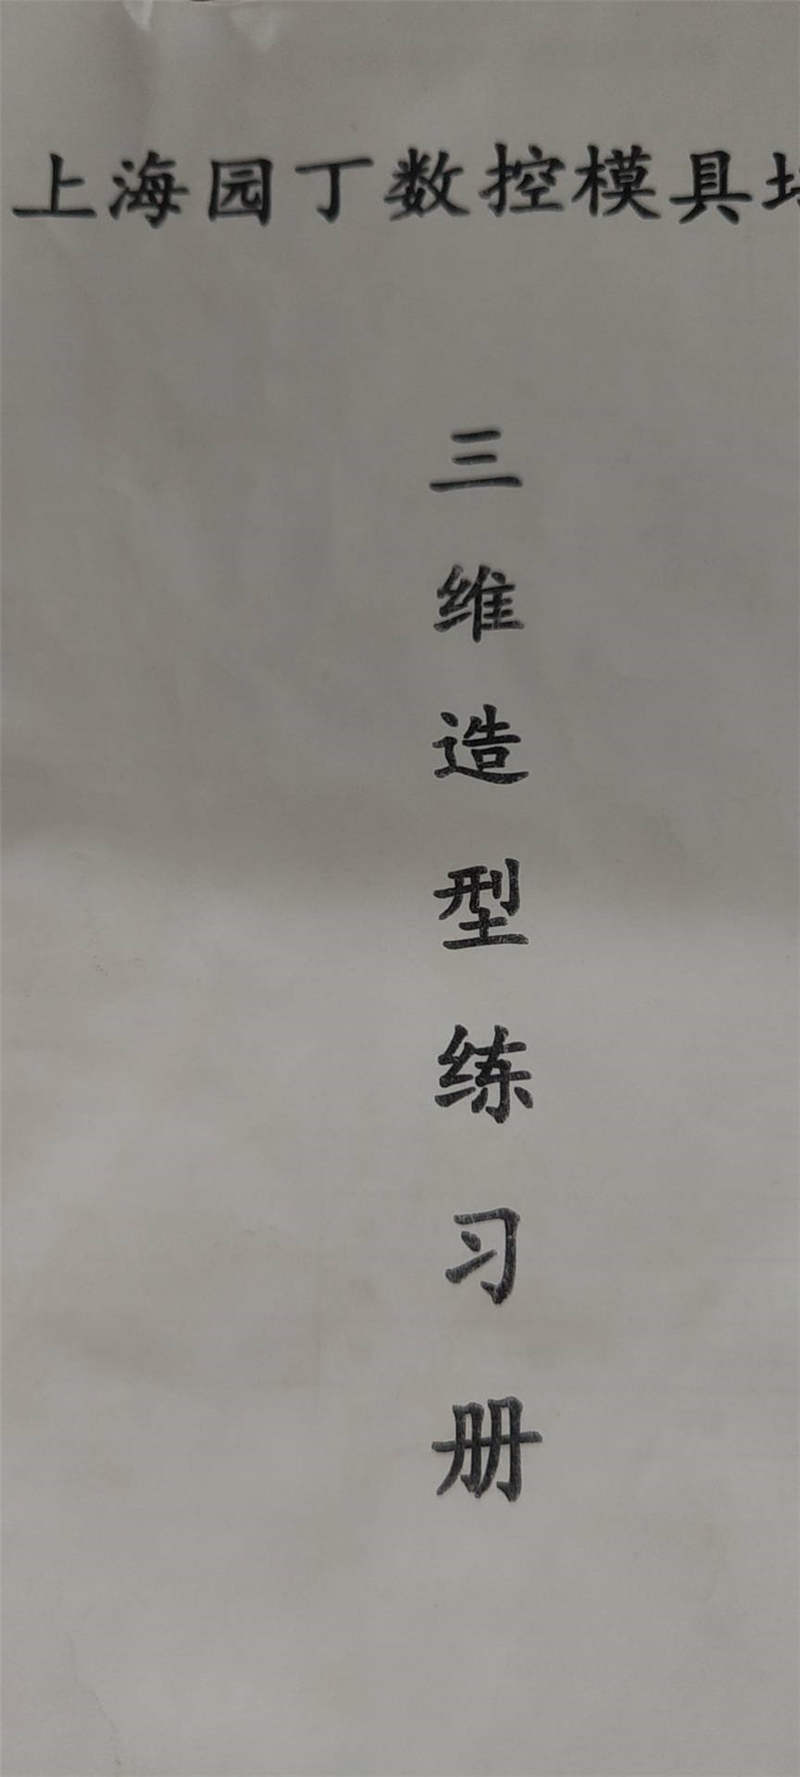 上海园丁数控模具
三维造型练习册